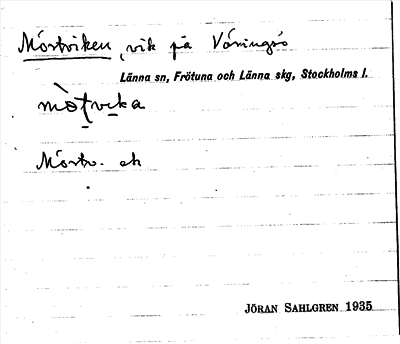 Mörtviken, vik på Väringsö
Länna sn, Frötuna och Länna skg, Stockholms l.
mò̱ṭvi̱ka
Mörtv. ek
JÖRAN SAHLGREN 1935